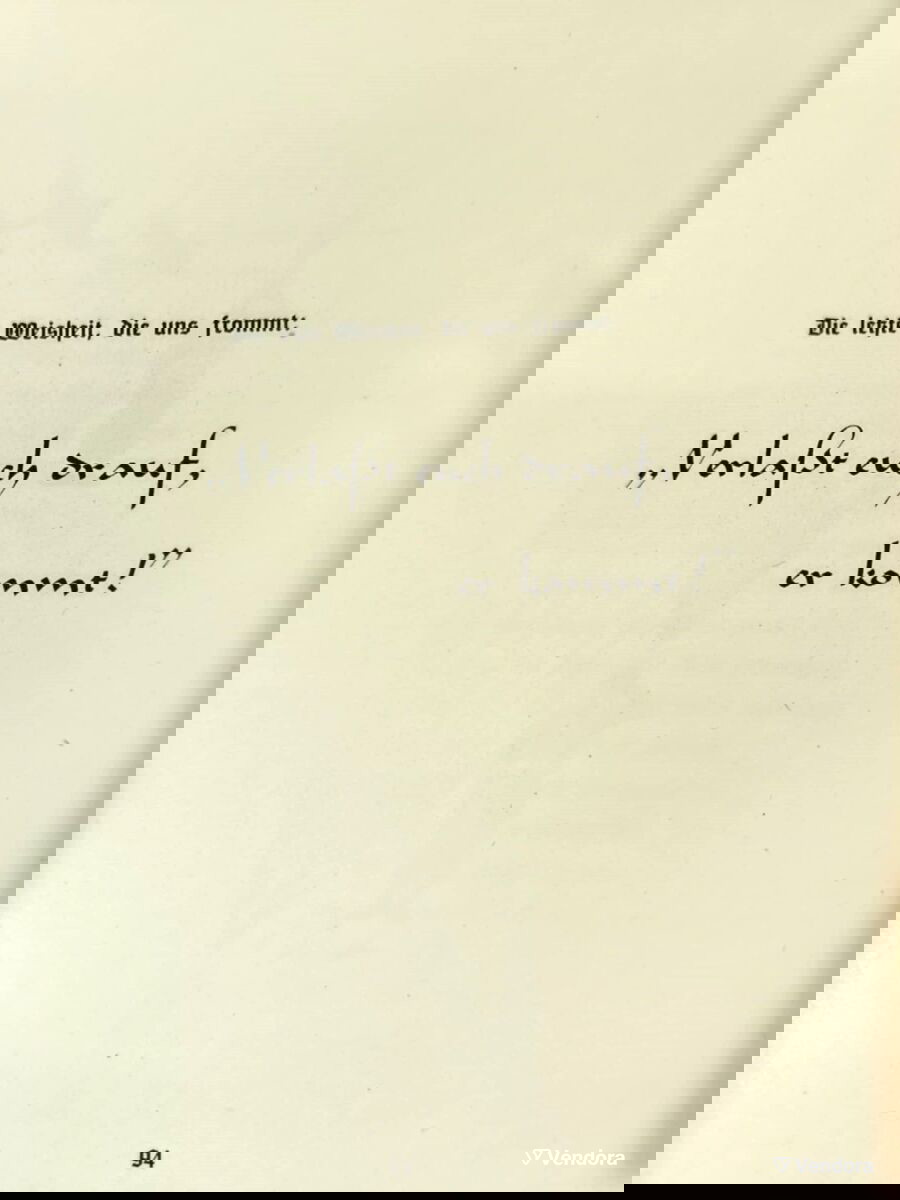 Die letzte Weisheit, die uns frommt:
„Verlaßt euch drauf,
er kommt!"
94
Vendora